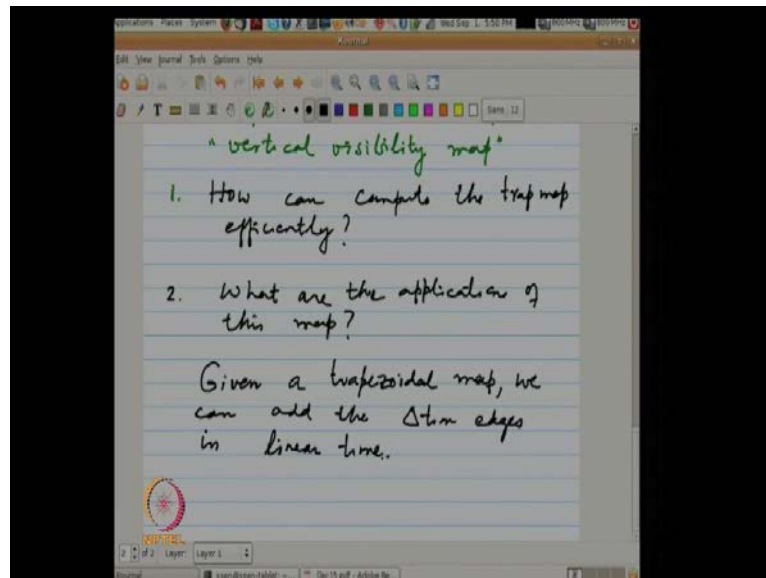 Applications Places System Wed Sep 1, 5:50 PM 800 MHz 800 MHz
Xournal
Edit View Journal Tools Options Help
Sans 12
"vertical visibility map"
1. How can compute the trap map
efficiently?
2. What are the application of
this map?
Given a trapezoidal map, we
can add the Δtion edges
in linear time.
NPTEL
2 of 2 Layer: Layer 1